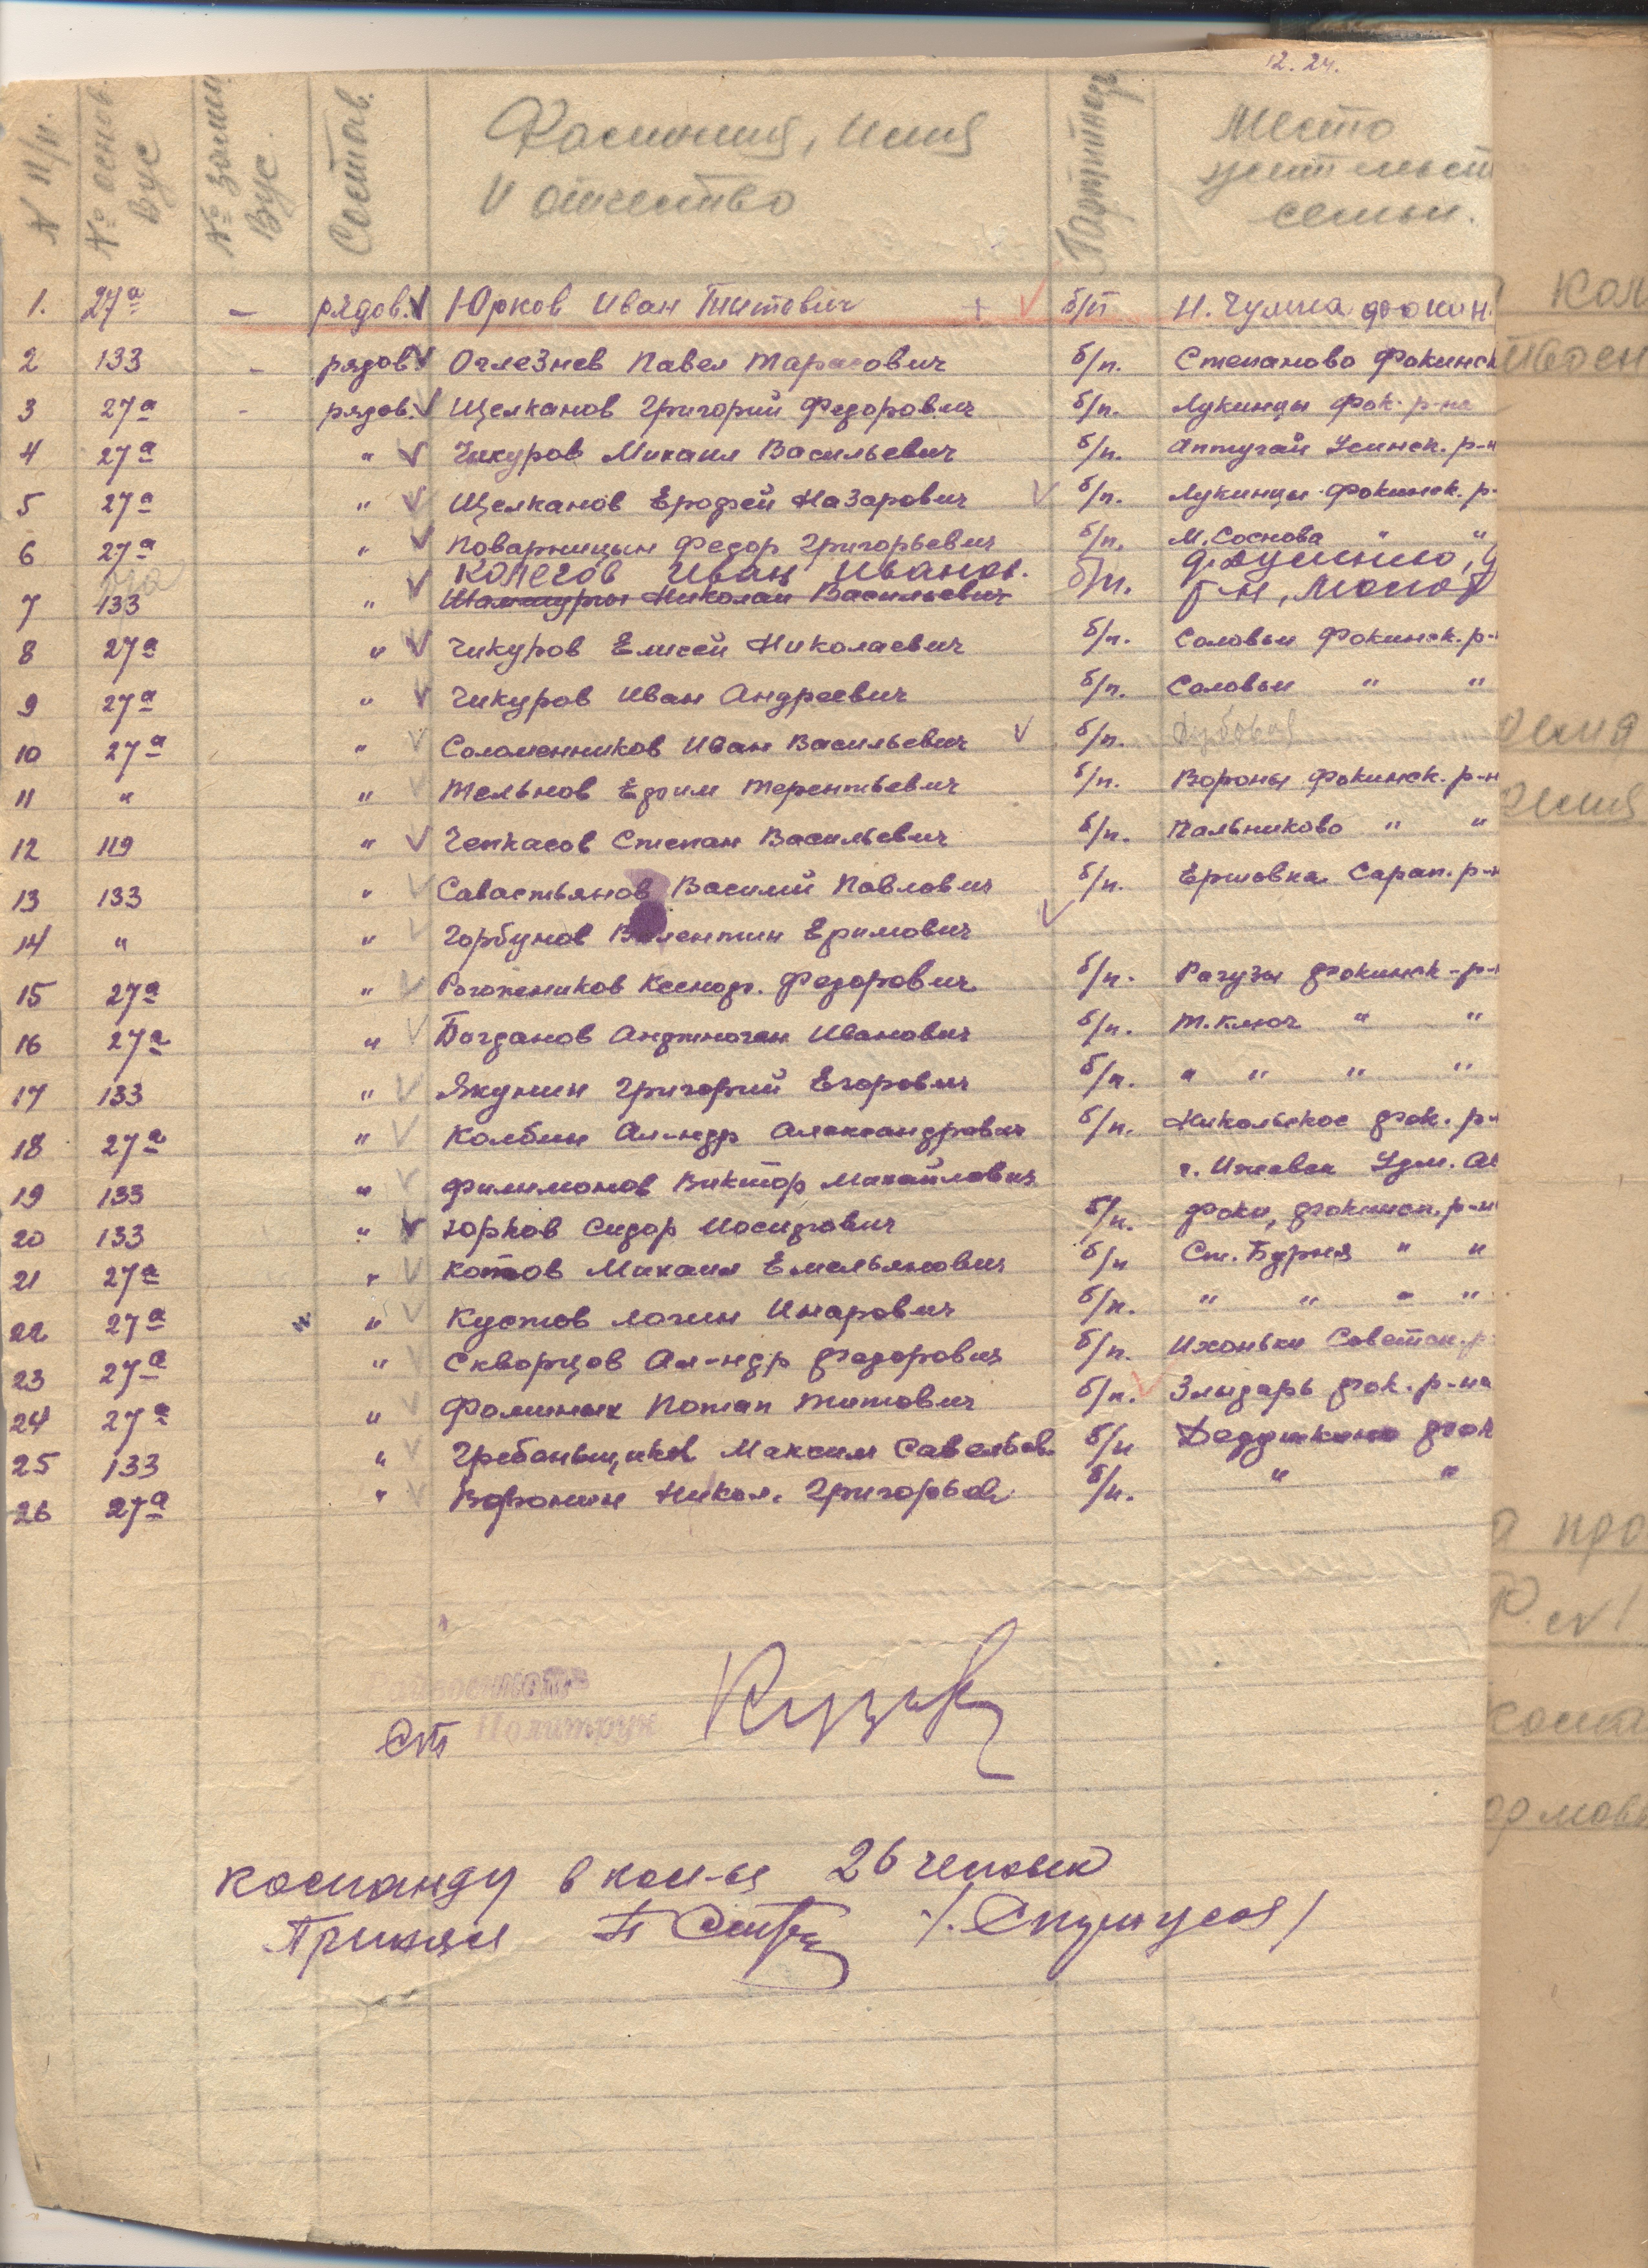 12. 24.
№ п/п. № основ. Вус № запасн. Вус. Состав. Фамилия, имя и отчество Партийность Место жительст семьи.
1. 27а — рядов. Юрков Иван Титович + б/п Н. Чумна Фокин.
2 133 - рядов Оглезнев Павел Тарасович б/п. Степаново Фокинск
3 27а - рядов. Щелканов Григорий Федорович б/п. Лукинцы Фок. р-на
4 27а " Чикуров Михаил Васильевич б/п. Аптугай Усинск. р-н
5 27а " Щелканов Ерофей Назарович б/п. Лукинцы Фокинск. р-
6 27а " Поварницын Федор Григорьевич б/п. М. Соснова " "
Колегов Иван Иванов. б/п.
7 133 " Николай Васильевич р-н,
8 27а " Чикуров Елисей Николаевич б/п. Соловьи Фокинск. р-
9 27а " Чикуров Иван Андреевич б/п. Соловьи " "
10 27а " Соломенников Иван Васильевич б/п. Дубовая
11 " " Тельнов Ефим Терентьевич б/п. Вороны Фокинск. р-н
12 119 " Чепкасов Степан Васильевич б/п. Пальниково " "
13 133 " Савастьянов Василий Павлович б/п. Ершовка Сарап. р-н
14 " " Горбунов Валентин Ефимович
15 27а " Рогожников Ксеноф. Федорович б/п. Рагузы Фокинск-р-
16 27а " Богданов Анфиноген Иванович б/п. Т. Ключ " "
17 133 " Якунин Григорий Егорович б/п. " " " "
18 27а " Колбин Ал-ндр Александрович б/п. Никольское Фок. р-
19 133 " Филимонов Виктор Михайлович г. Ижевск Удм. А
20 133 " Юрков Сидор Иосифович б/п. Фоки, Фокинск. р-н
21 27а " Котов Михаил Емельянович б/п Ст. Бурня " "
22 27а " Кустов Логин Инарович б/п. " " " "
23 27а " Скворцов Ал-ндр Федорович б/п. Ихоньки Советск. р-
24 27а " Фоминых Потап Титович б/п. Злыдарь Фок. р-на
25 133 " Гребеньщиков Максим Савельев. б/п Дедушкино Фок
26 27а " Воронин Никол. Григорьев б/п. " "
Ст Политрук
команду в кол-ве 26 человек
Принял